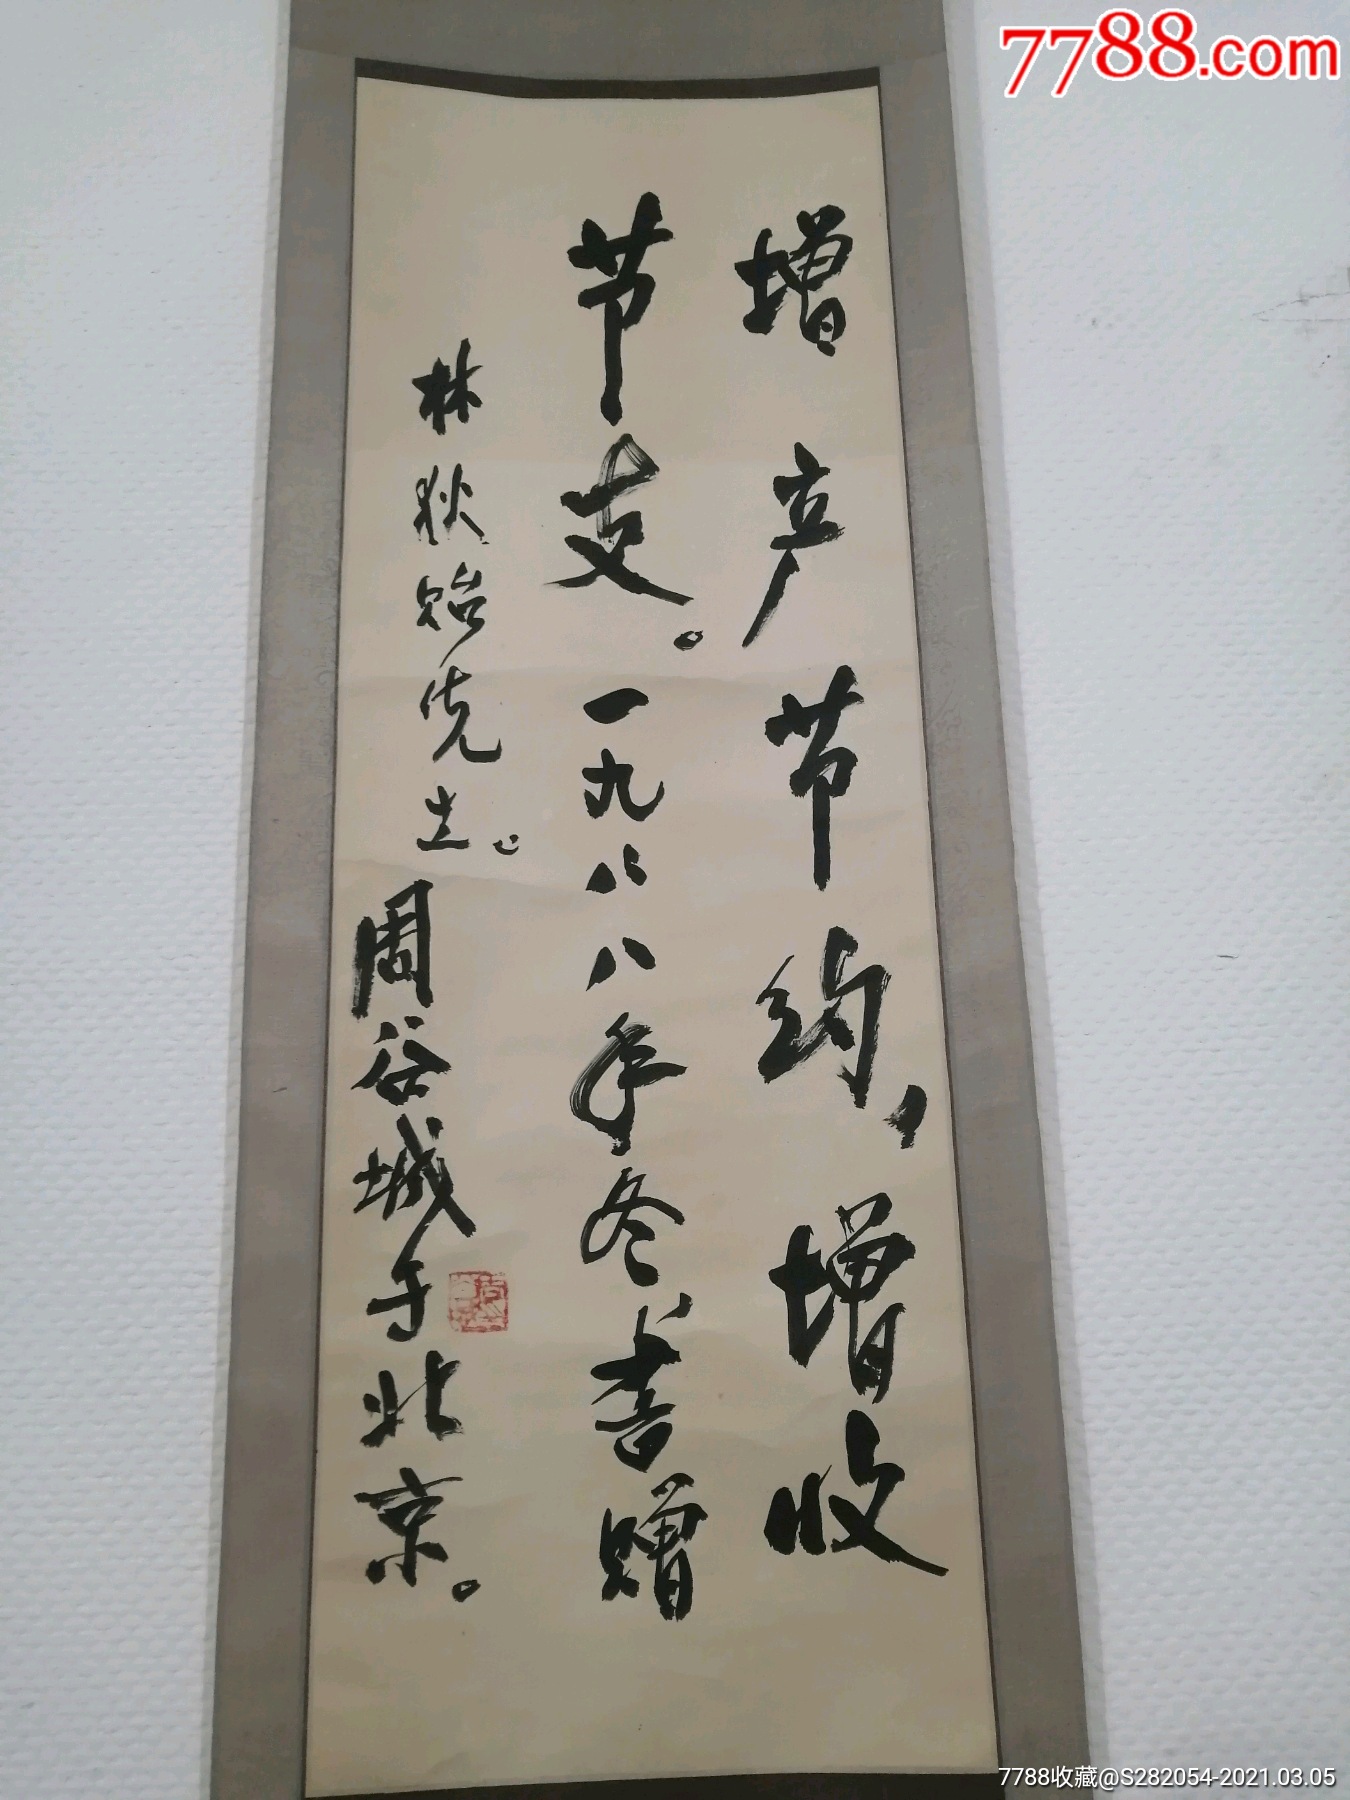 7788.com
增产节约，增收
节支。一九八八年冬书赠
林狄贻先生。周谷城于北京。
7788收藏@S282054-2021.03.05